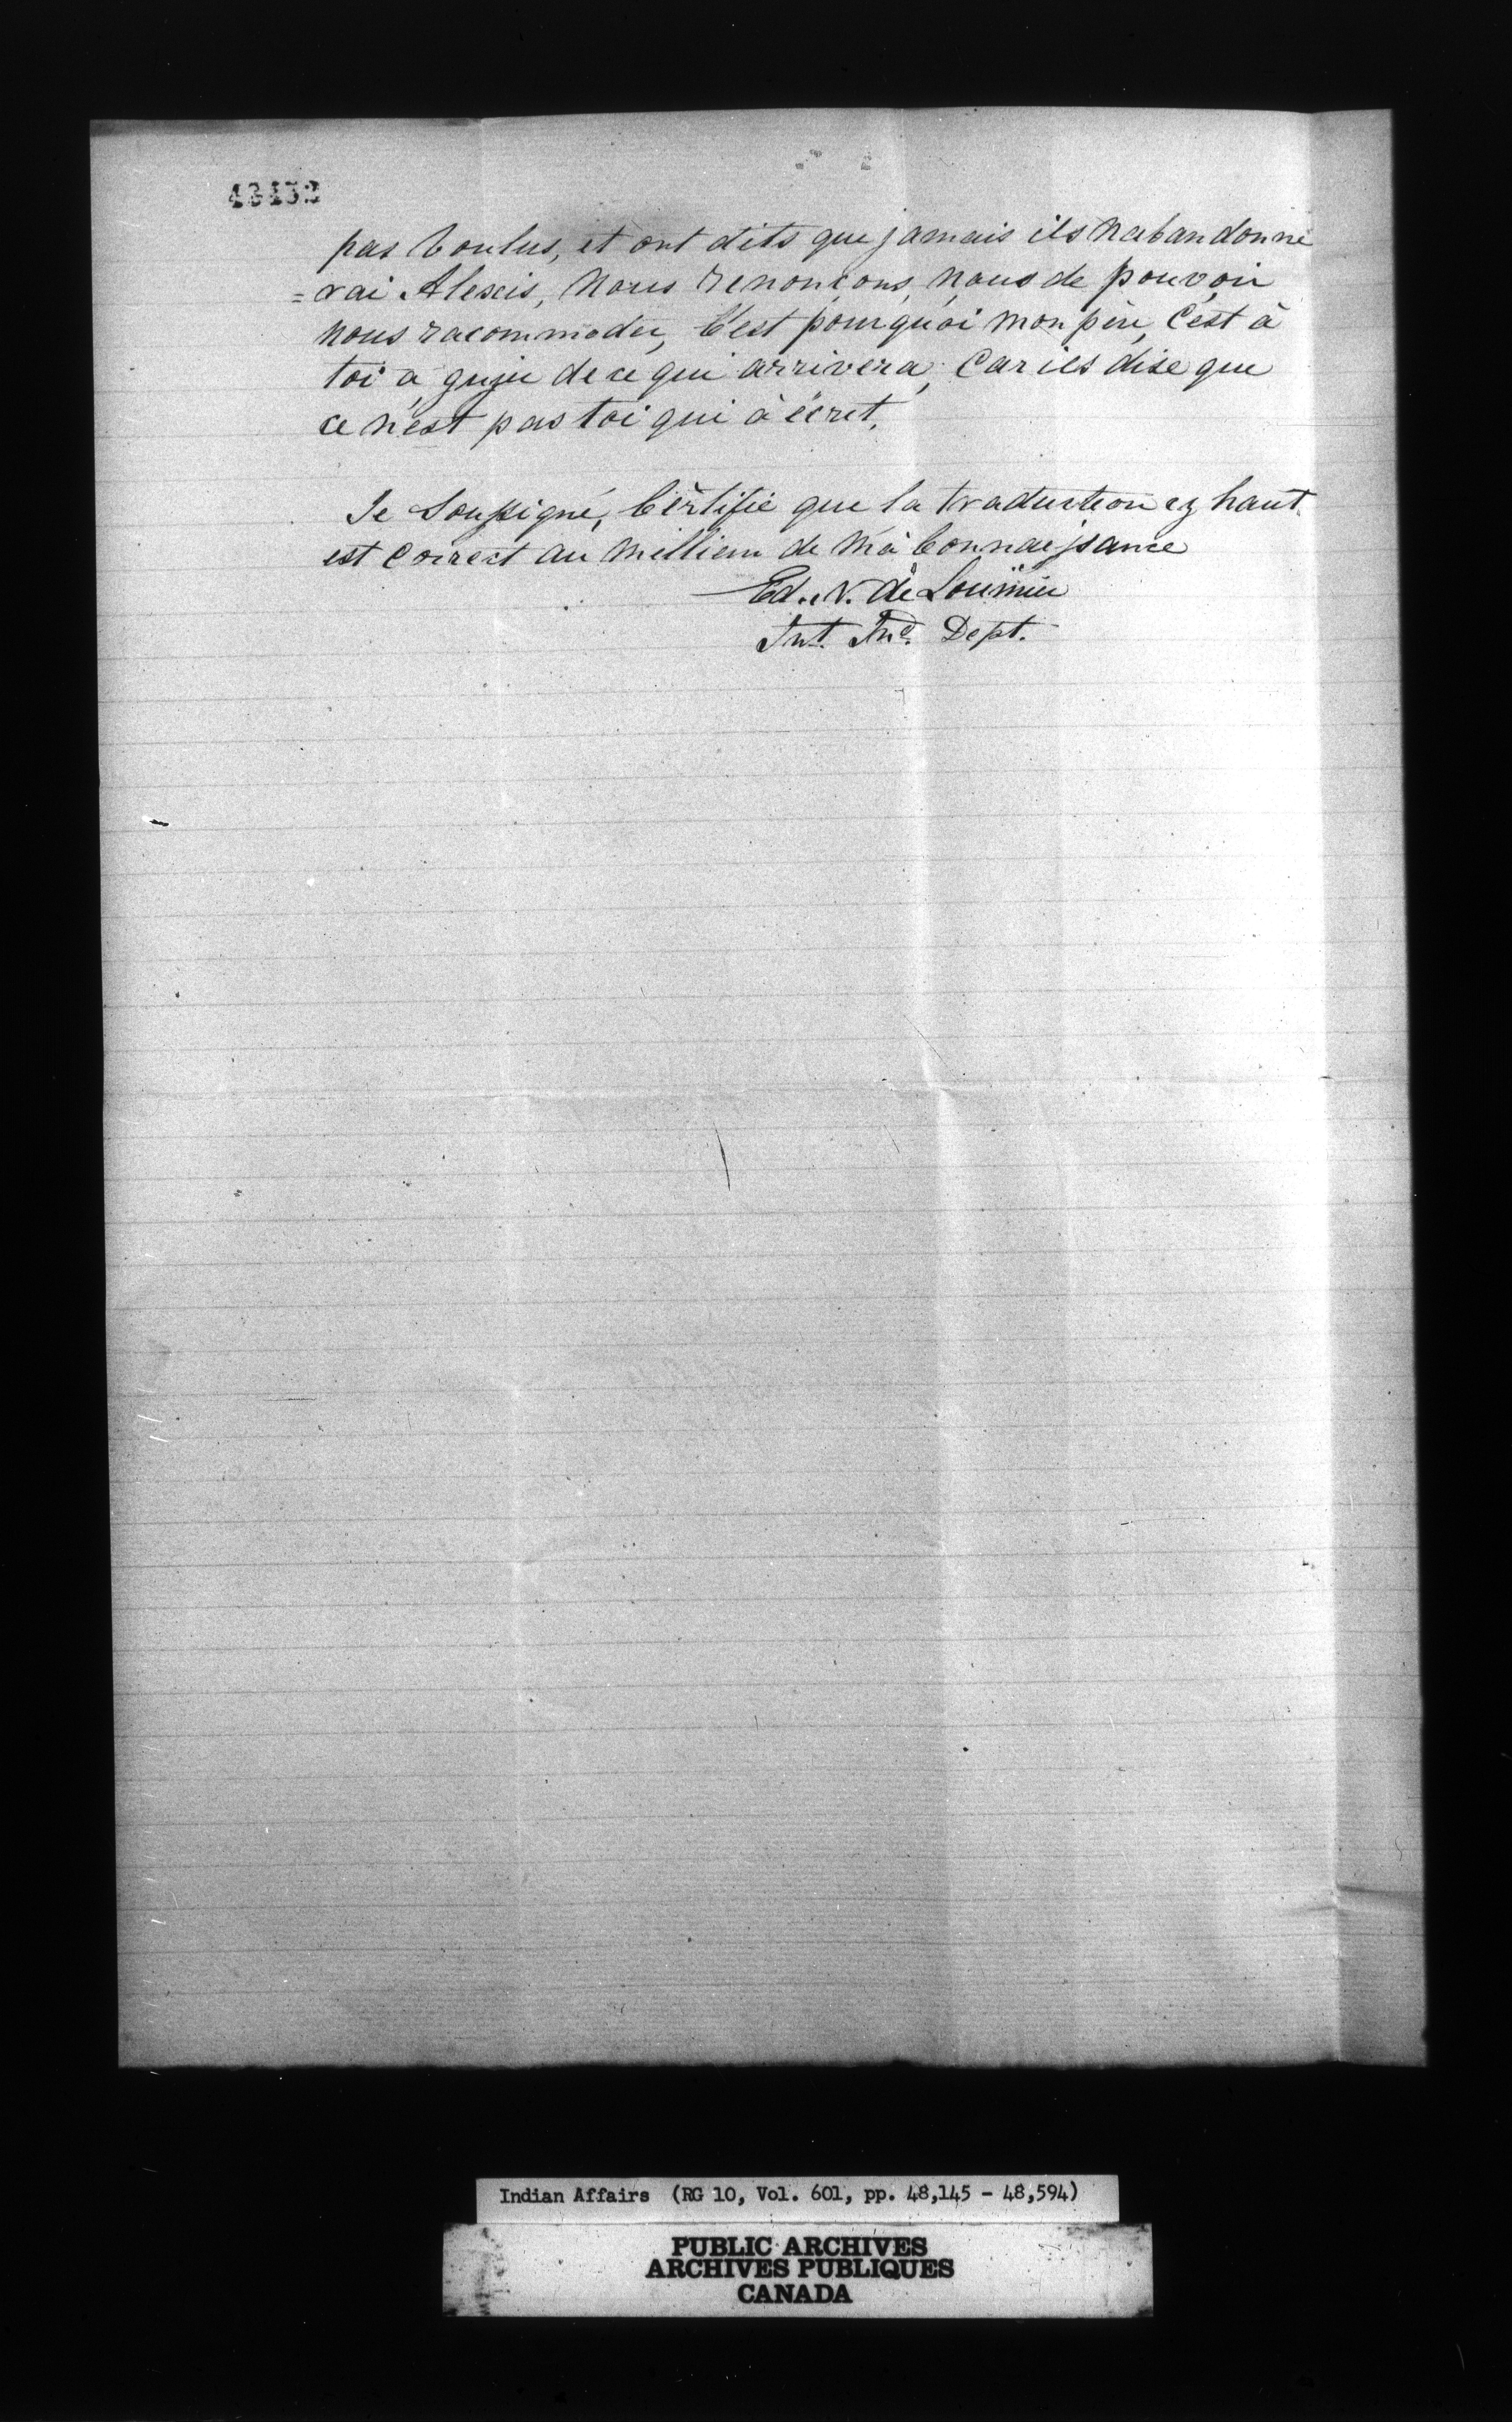 48432
pas Voulus, et ont dits que jamais ils Nabandonne
=rai Alexis, Nous Renoncons, nous de pouvoir
nous racommoder, C'est pourquoi mon père, C'est à
toi à juger de ce qui arrivera, Car ils dise que
ce n'est pas toi qui à ècrit.
Je Soussigné, Certifie que la traduction cy haut
est Correct au Millieur de Ma Connaissance
Ed. N. de Lorimier
Int. Ind. Dept.
Indian Affairs (RG 10, Vol. 601, pp. 48,145 - 48,594)
PUBLIC ARCHIVES
ARCHIVES PUBLIQUES
CANADA